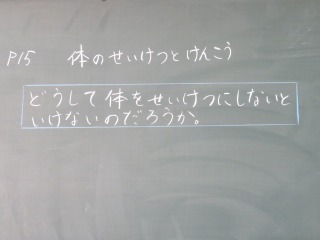 P15 体のせいけつとけんこう
どうして体をせいけつにしないと
いけないのだろうか。